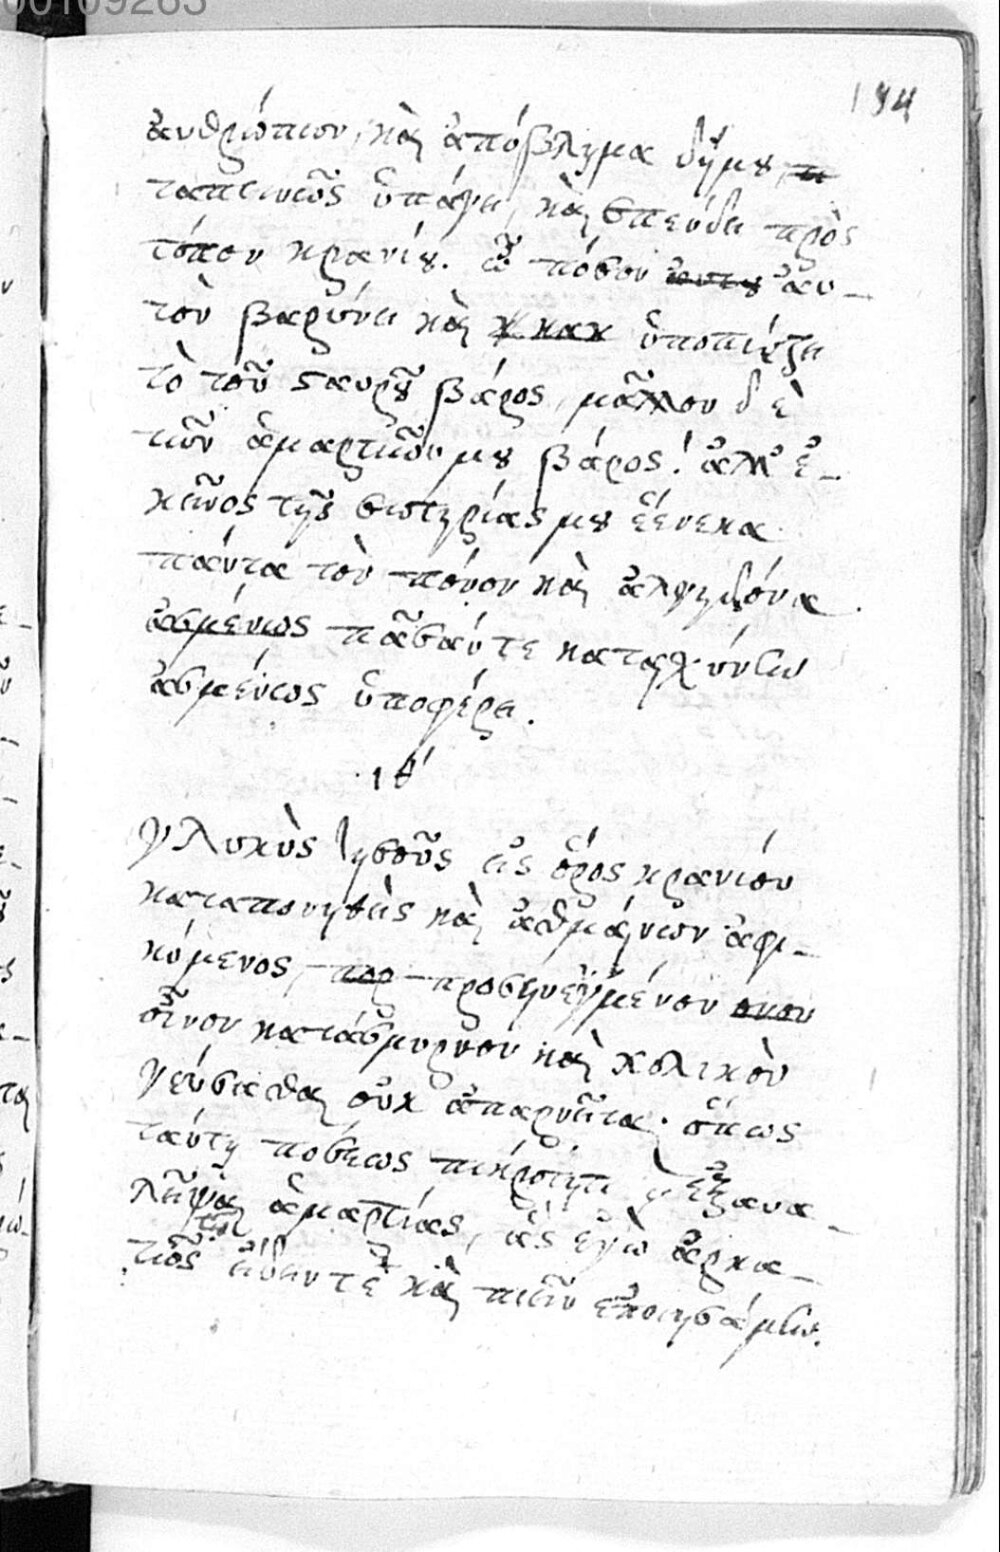 00109263
194
ἀνθρώπων, καὶ ἀπόβλημα δήμου
ταπεινῶς ὑπάγει, καὶ σπεύδει πρὸς
τόπον κρανίου. ὢ πόσον αὐ-
τὸν βαρύνει καὶ ὑποπιέζει
τὸ τοῦ σταυροῦ βάρος, μᾶλλον δὲ
τῶν ἁμαρτιῶν μου βάρος! ἀλλ' ἐ-
κεῖνος τῆς σωτηρίας μου ἕνεκα
πάντα τὸν πόνον καὶ ἀλγηδόνα
ἀσμένως πᾶσάν τε καταισχύνην
ἀσμένως ὑποφέρει.
ιθ'
Γλυκὺς Ἰησοῦς εἰς ὄρος κρανίου
καταπονηθεὶς καὶ ἀσθμαίνων ἀφι-
κόμενος, προσηνεγμένον
οἶνον κατάσμυρνον καὶ χολικὸν
γεύσασθαι οὐκ ἀπαρνεῖται· ὅπως
ταύτῃ πόσεως πικρότητι ἐξανα-
λείψῃ ἁμαρτίας, ἃς ἐγὼ ἀρκα-
τιος ἐσθίειν τε καὶ πιεῖν ἐποιησάμην.